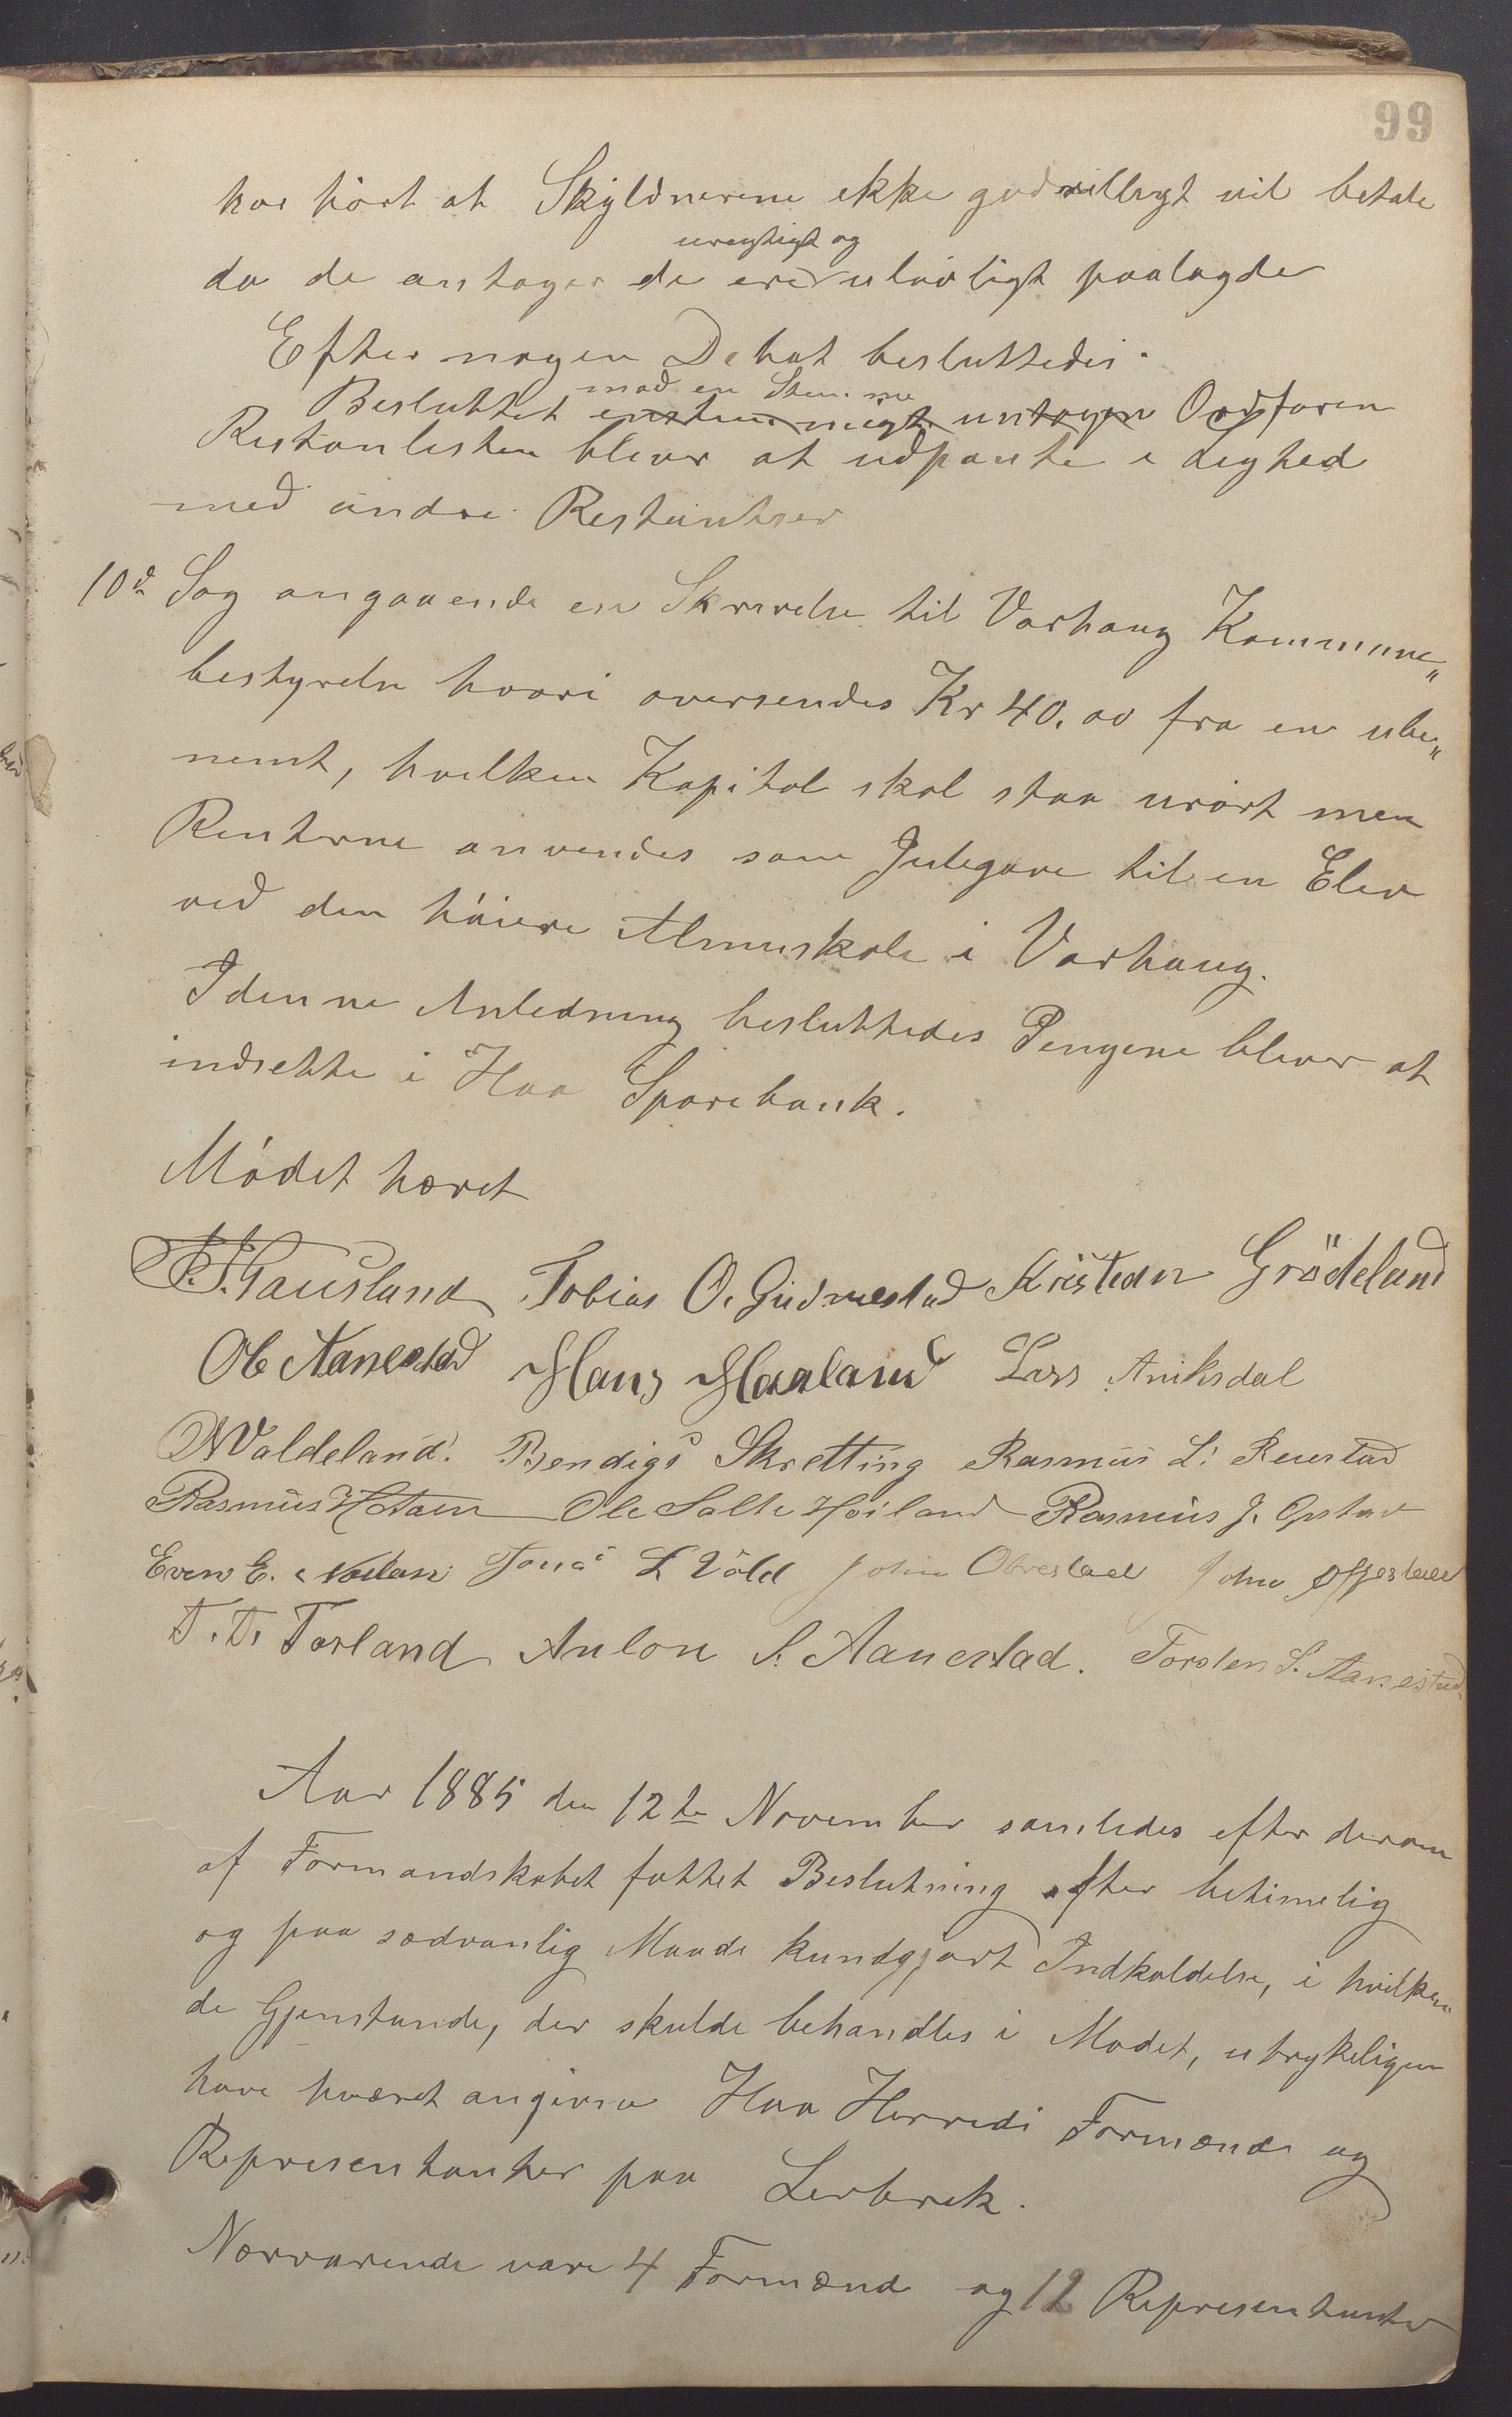 99
har hört at Skyldnerene ikke godvilligt vil betale
uregtigt og
da de antager de ere ulovligt paalagde
Efter nogen Debat besluttedes.
mod en Stemme
Besluttet enstemmigt untagen Ordforen
Restanlisten bliver at udpante i Lighed
med andre Restantser
10d Sag angaaende en Skrivelse til Varhaug Kommune„
bestyrelse hvori oversendes Kr 40.00 fra en ube„
nemt, hvilken Kapital skal staa urört men
Renterne anvendes som Julegave til en Elev
ved den höiere Almuskole i Varhaug.
I denne Anledning besluttedes Pengene bliver at
indsette i Haa Sparebank.
Mödet hævet
Gausland Tobias O. Gudmestad Kristian Grödeland
Ole Aanestad Hans Haaland Lars Aniksdal
Waldeland. Bendigs Skretting Rasmus L. Reiestad
Rasmus Hetoen Ole Salte Höiland Rasmus J. Opstad
Even E. Nærland Tonas L Vold John Obrestad John Ogjestad
T. T. Torland Anton S. Aanestad. Torsten S. Aanestad
Aar 1885 den 12te November samledes efter derom
af Formandskabet fattet Beslutning efter betimelig
og paa sædvanlig Maade kundgjort Indkaldelse, i hvilken
de Gjenstande, der skulde behandles i Mødet, utrykeligen
have hværet angivne Haa Herreds Formænd og
Representanter paa Lerbrek.
Nærværende vare 4 Formænd og 12 Representanter